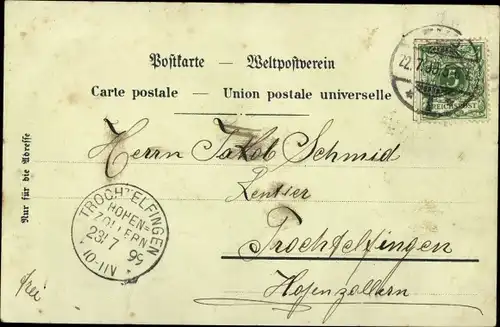 Postkarte — Weltpostverein
Carte postale — Union postale universelle
22.7.99
5
REICHSPOST
Nur für die Adresse
Herrn Jakob Schmid
Rentier
Trochtelfingen
Hohenzollern
TROCHTELFINGEN
HOHEN=
ZOLLERN
23/7 99
10-11N
frei